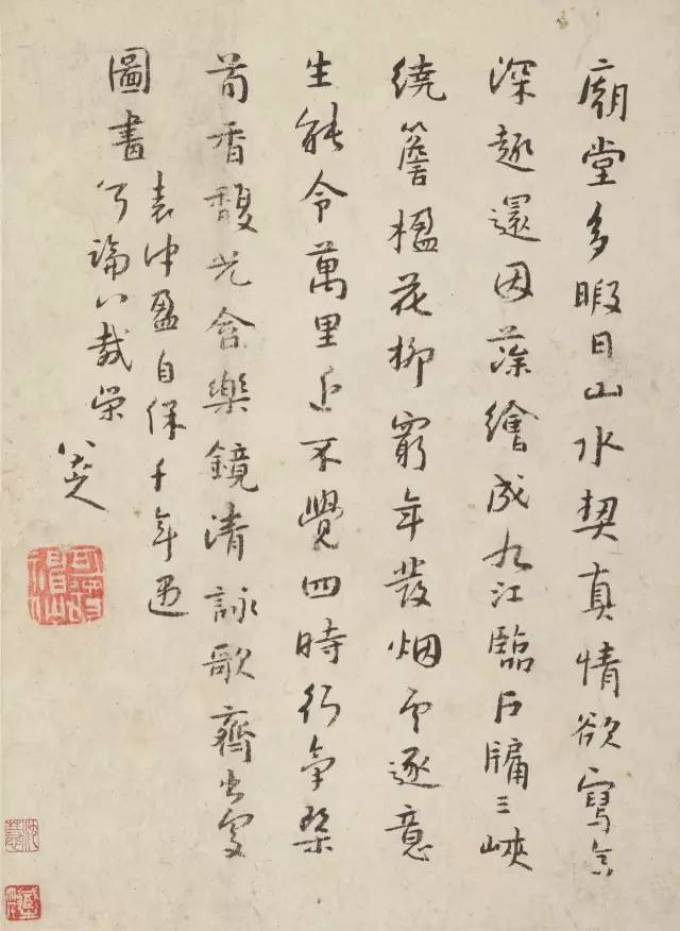 廟堂多暇日山水契真情欲寫高
深趣還因藻繪成九江臨戶牖三峽
繞簷楹花柳窮年發烟雲逐意
生能令萬里近不覺四時行氣染
荀香馥光含樂鏡清詠歌齊出處
圖書
表沖盈自保千年遇
何論八載榮
八大山人